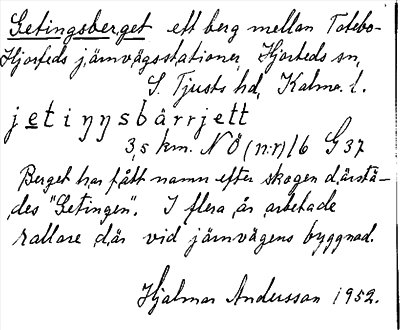 Getingsberget ett berg mellan Totebo-
Hjorteds järnvägsstationer, Hjorteds sn,
S. Tjusts hd, Kalmar l.
jetiŋŋsbärrjett
3,5 km. NÖ (n:r) 16 G 37
Berget har fått namn efter skogen därstä-
des "Getingen". I flera år arbetade
rallare där vid järnvägens byggnad.
Hjalmar Andersson 1952.